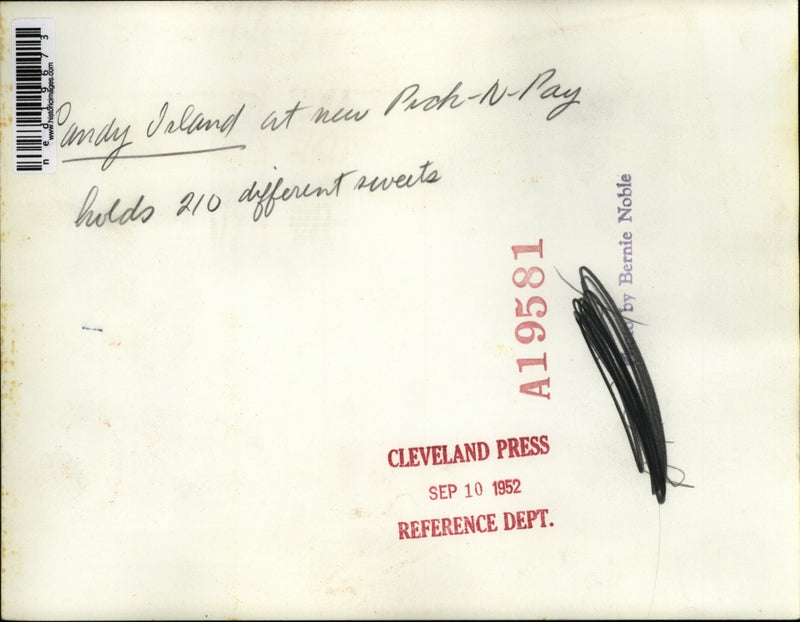 Candy Island at new Pick-N-Pay
holds 210 different sweets
by Bernie Noble
A19581
CLEVELAND PRESS
SEP 10 1952
REFERENCE DEPT.
www.historicimages.com